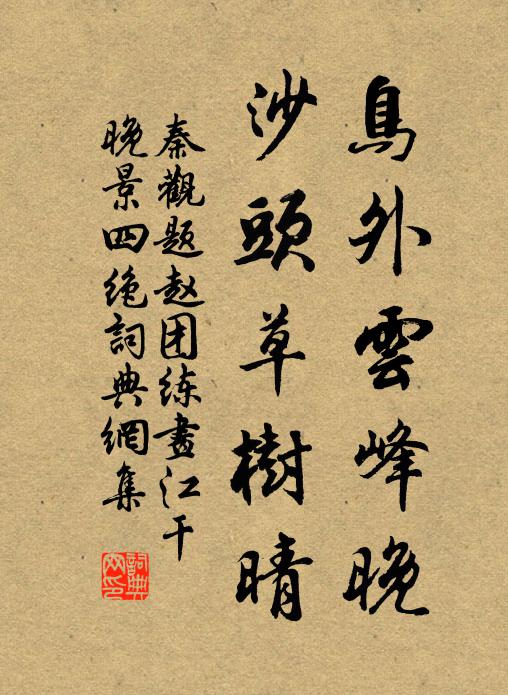 鳥外雲峰晚
沙頭草樹晴
秦觀題赵団练畫江干
晚景四绝詞典網集
詞典网印